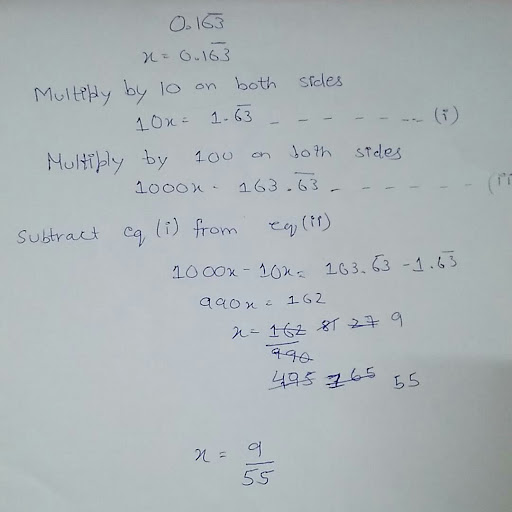 0.16̅3̅
x = 0.16̅3̅
Multiply by 10 on both sides
10x = 1.6̅3̅ - - - - - - -- (i)
Multiply by 100 on both sides
1000x - 163.6̅3̅ - - - - - - - (ii
Subtract eq (i) from eq (ii)
1000x - 10x = 163.6̅3̅ - 1.6̅3̅
990x = 162
x = 162 81 27 9
990
495 165 55
x = 9
55